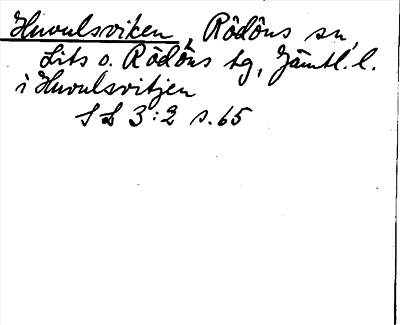 Huvulsviken, Rödöns sn,
Lits o. Rödöns tg, Jämtl. l.
i Huvulsvitjen
S L 3:2 s. 65